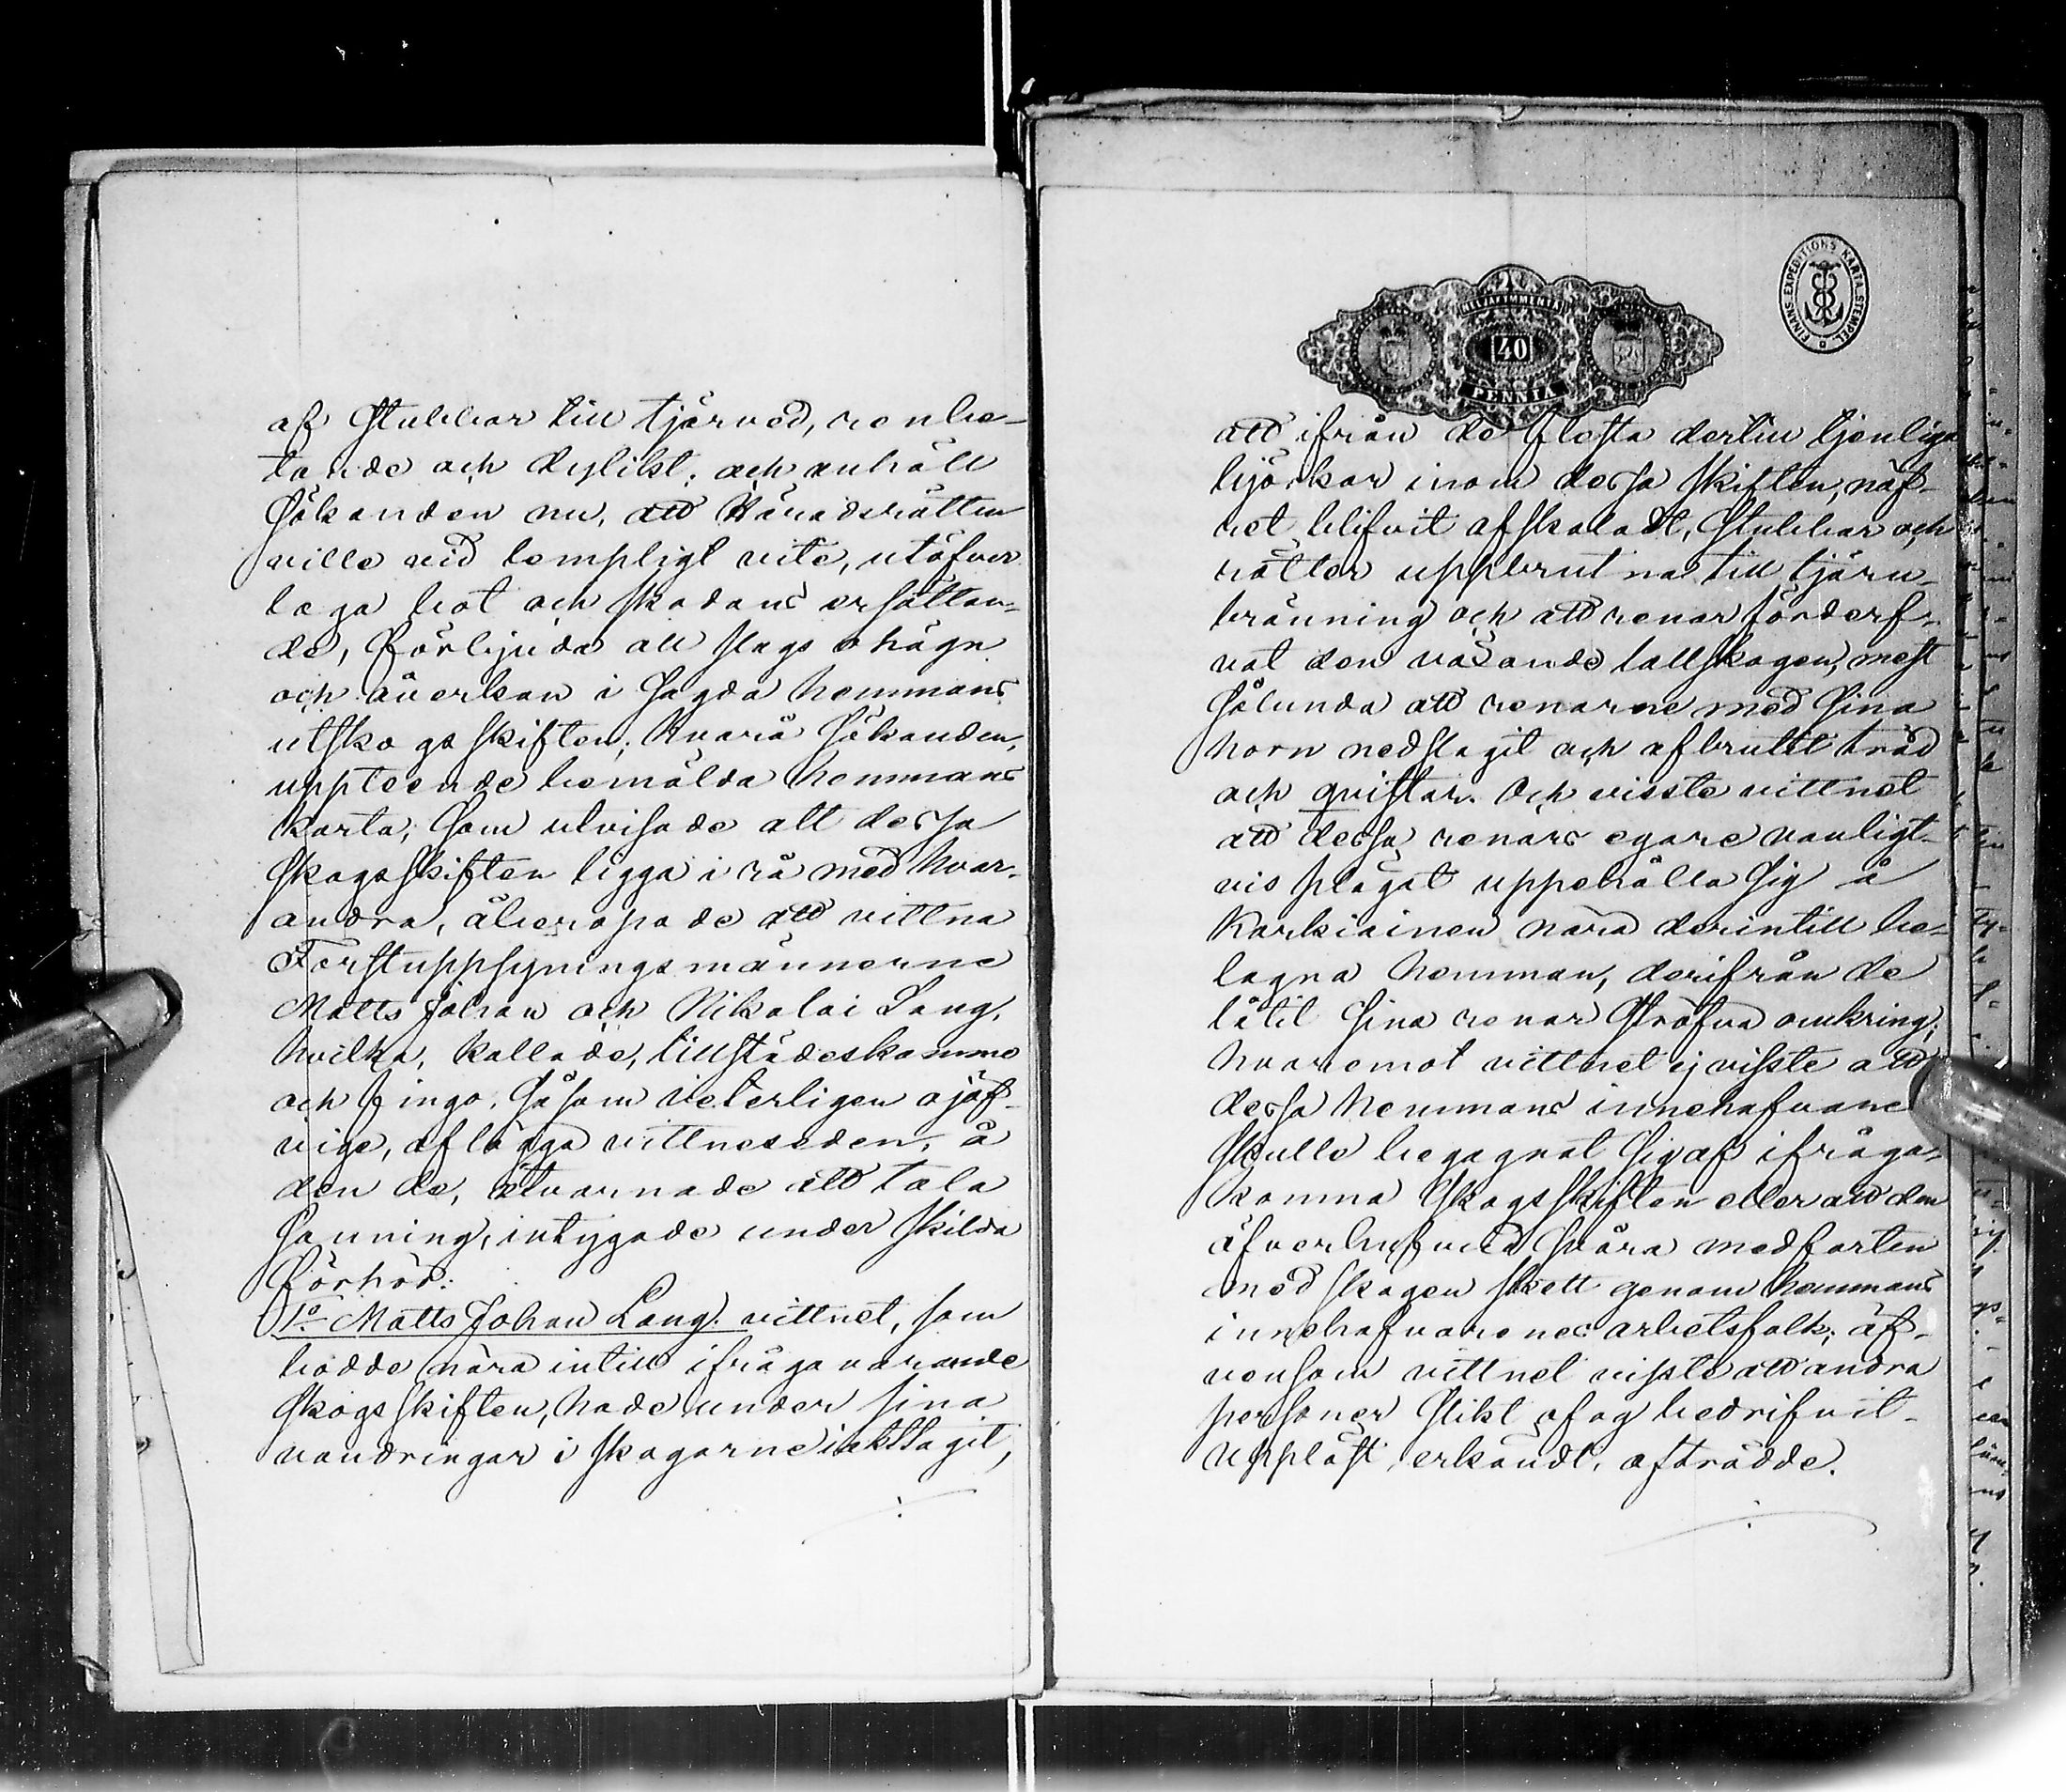 af stubbar till tjärved, renbe-
tande och dylikt; och anhöll
Sökanden nu, att Häradsrätten
ville vid lempligt vite, utöfver
laga bot och skadans ersättan-
de, förbjuda all slags ohägn
och åverkan i sagda hemmans
utskogsskiften; hvarå Sökanden,
uppteende bemälda hemmans
karta, som utvisade att dessa
skogsskiften ligga i rå med hvar-
andra, åberopade att vittna
Forstuppsyningsmännerne
Matts Johan och Nikolai Lang,
hvilka, kallade, tillstädeskommo
och fingo, såsom veterligen ojäf-
vige, aflägga vittneseden, å
den de, åtvarnade att tala
sanning, intygade under skilda
förhör:
1o. Matts Johan Lang: vittnet, som
bodde nära intill ifrågavarande
skogsskiften, hade under sina
vandringar i skogarne iakttagit,
FINANS-EXPEDITIONS KARTA.STEMPEL
40
PENNIÄ
att ifrån de flesta dertill tjenliga
björkar inom dessa skiften, näf-
ret blifvit afskaladt, stubbar och
rötter uppbrutna till tjäru-
bränning och att renar förderf-
vat den växande tallskogen, mest
sålunda att renarne med sina
horn nedslagit och afbrutit träd
och qvistar. Och visste vittnet
att dessa renars egare vanligt-
vis plägat uppehålla sig å
Karkiainen nära derintill be-
lägna hemman, derifrån de
låtit sina renar ströfva omkring;
hvaremot vittnet ej visste att
dessa hemmans innehafvare
skulle begagnat sig af ifråga-
komna skogsskiften eller att den
öfverhufvud svåra medfarten
med skogen skett genom hemmans
innehafvarenes arbetsfolk; äf-
vensom vittnet visste att andra
personer slikt ofog bedrifvit.
Uppläst, erkändt, afträdde.